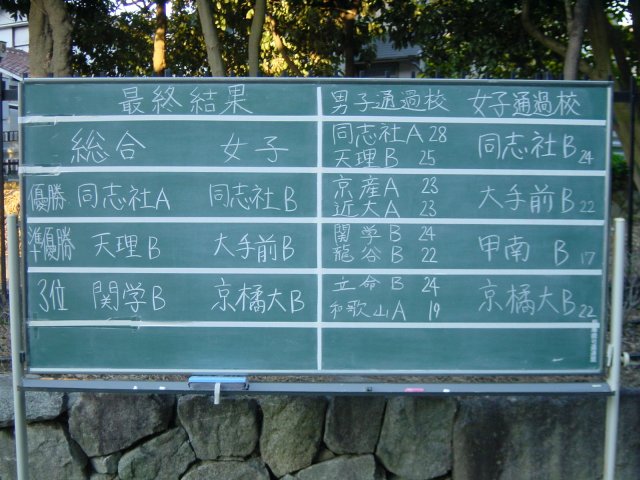 最終結果
総合 女子
優勝 同志社A 同志社B
準優勝 天理B 大手前B
3位 関学B 京橘大B
男子通過校 女子通過校
同志社A 28 同志社B 24
天理B 25
京産A 23 大手前B 22
近大A 23
関学B 24 甲南 B 17
龍谷B 22
立命B 24 京橘大B 22
和歌山A 19